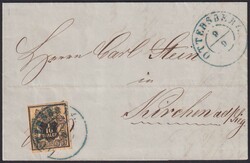 OTTERSBERG
9
9
Herrn Carl Stein
in
Kirchen a/d Sieg